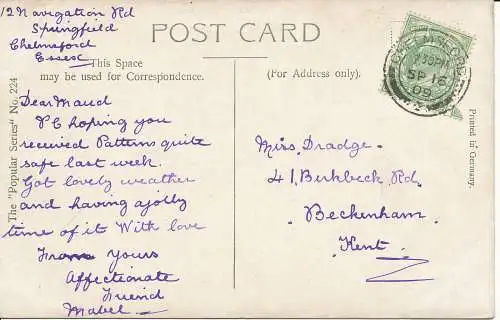 12 Navigation Rd
Springfield
Chelmsford
Essex
POST CARD
This Space
may be used for Correspondence.
(For Address only).
CHELMSFORD
7 30 PM
SP 16
09
The "Popular Series" No. 224
Printed in Germany.
Dear Maud
PC hoping you
received Patterns quite
safe last week.
Got lovely weather
and having a jolly
time of it With love
From Yours
Affectionate
Friend
Mabel
Miss Dradge.
41, Birkbeck Rd,
Beckenham.
Kent.